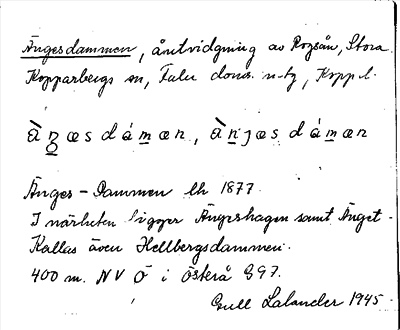 Ängesdammen, åutvidgning av Rogsån, Stora
Kopparbergs sn, Falu doms. n-tg, Kopp.l.
Änges-Dammen Lk 1877.
I närheten ligger Ängeshagen samt Änget.
Kallas även Hellbergsdammen.
400 m. NV Ö i Österå G97.
Gull Lalander 1945.